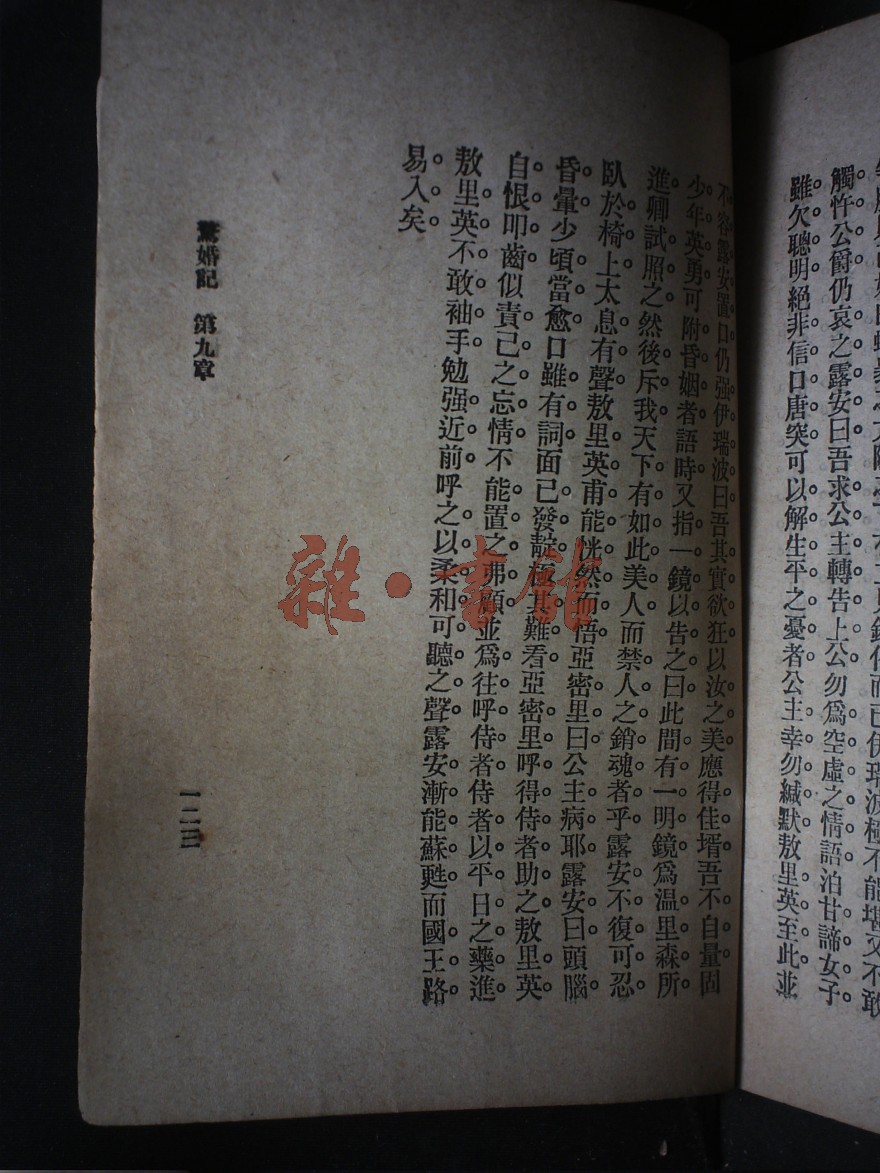 觸忤公爵仍哀之露安曰吾求公主轉告上公勿爲空虛之情語泊甘諦女子。
雖欠聰明絕非信口唐突可以解生平之憂者公主幸勿緘默敖里英至此並
不容露安置口仍强伊瑞波曰吾其實欲狂以汝之美應得佳壻吾不自量固
少年英勇可附昏姻者語時又指一鏡以告之曰此間有一明鏡爲温里森所
進卿試照之然後斥我天下有如此美人而禁人之銷魂者乎露安不復可忍
臥於椅上太息有聲敖里英甫能恍然而悟亞密里曰公主病耶露安曰頭腦
昏暈少頃當愈口雖有詞面已發靛極其難看亞密里呼得侍者助之敖里英
自恨叩齒似責己之忘情不能置之弗顧並爲往呼侍者侍者以平日之藥進
敖里英不敢袖手勉强近前呼之以柔和可聽之聲露安漸能蘇甦而國王路
易入矣。
驚婚記　第九章
一二三
雜·書館